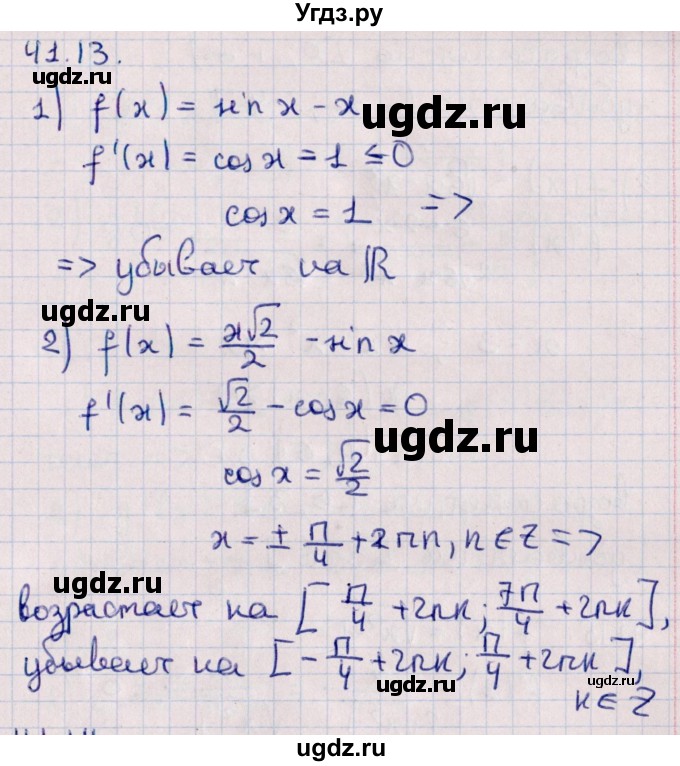 Угдз.ру
41.13.
ugdz.ru
1) f(x) = sin x - x
ugdz.ru
f'(x) = cos x = 1 ≤ 0
cos x = 1 =>
=> убывает на ℝ
ugdz.ru
2) f(x) = x√2/2 - sin x
f'(x) = √2/2 - cos x = 0
ugdz.ru
cos x = √2/2
x = ± π/4 + 2πn, n ∈ Z =>
возрастает на [π/4 + 2πk; 7π/4 + 2πk],
убывает на [-π/4 + 2πk; π/4 + 2πk],
ugdz.ru
ugdz.ru
k ∈ Z
ugdz.ru